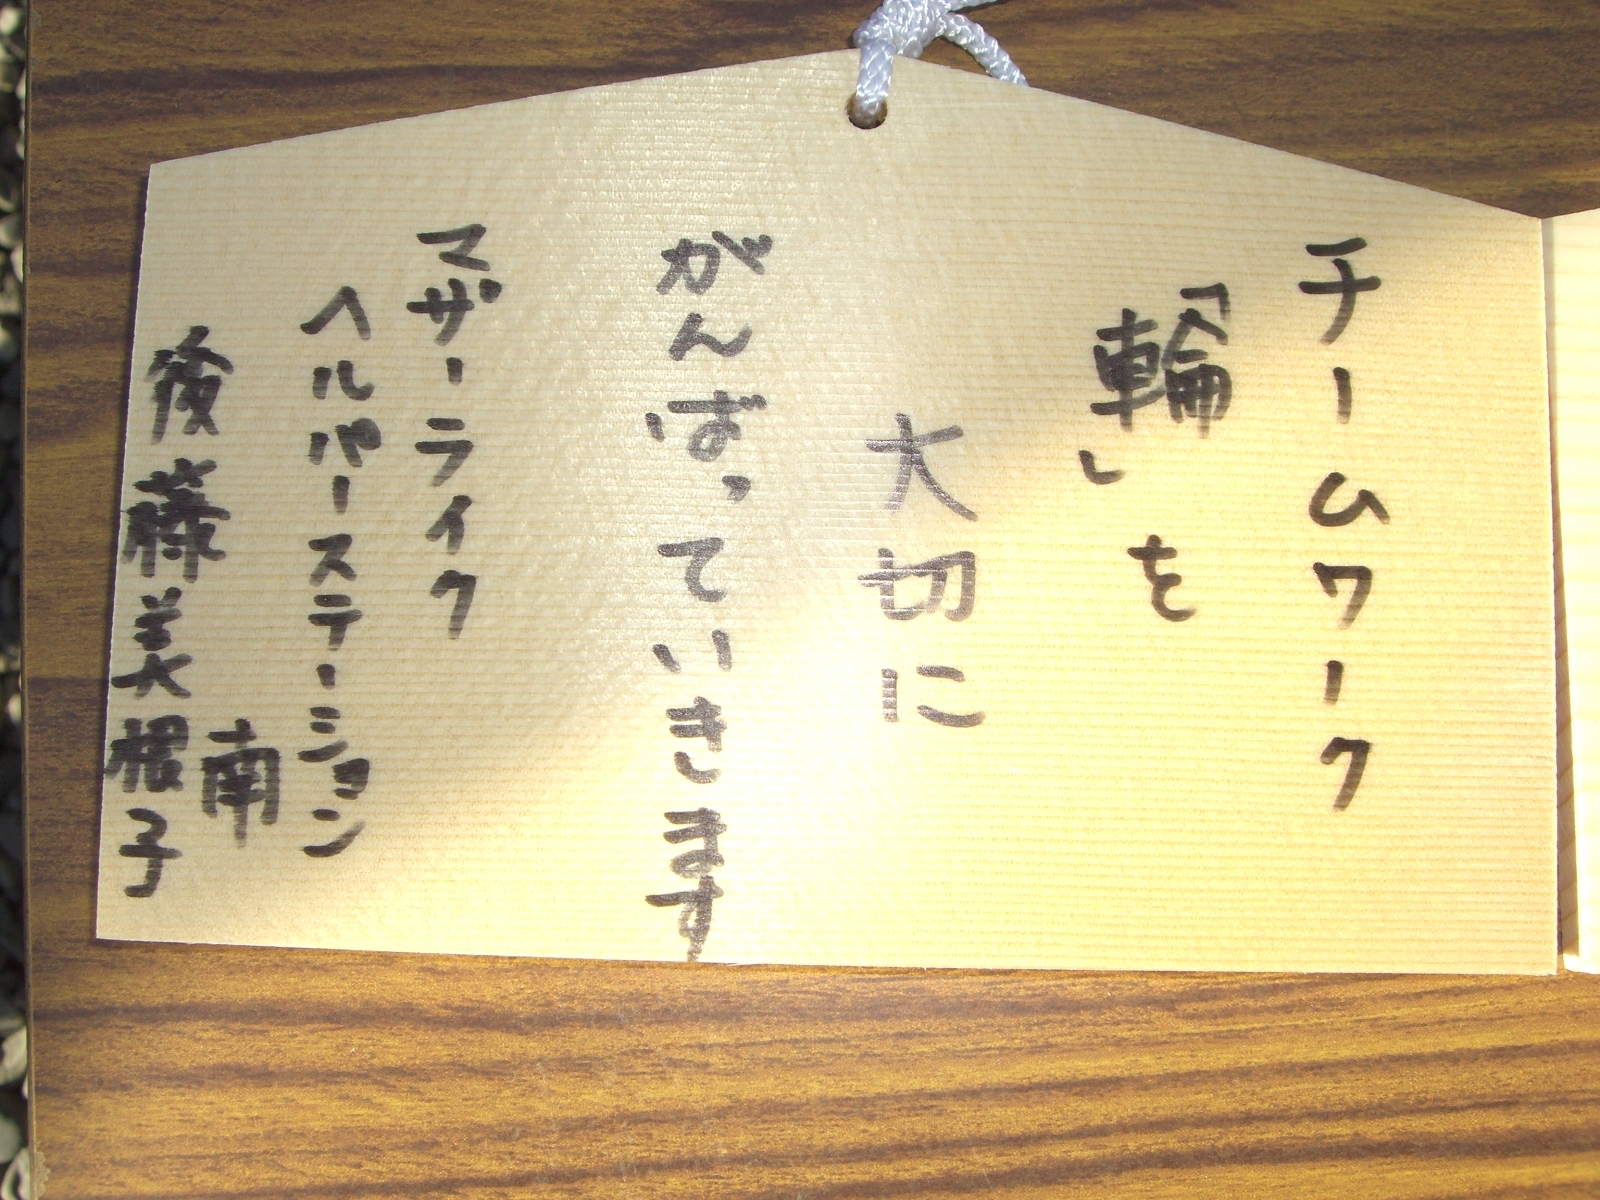 チームワーク
「輪」を
大切に
がんばっていきます
マザーライク
ヘルパーステーション
南
後藤美根子